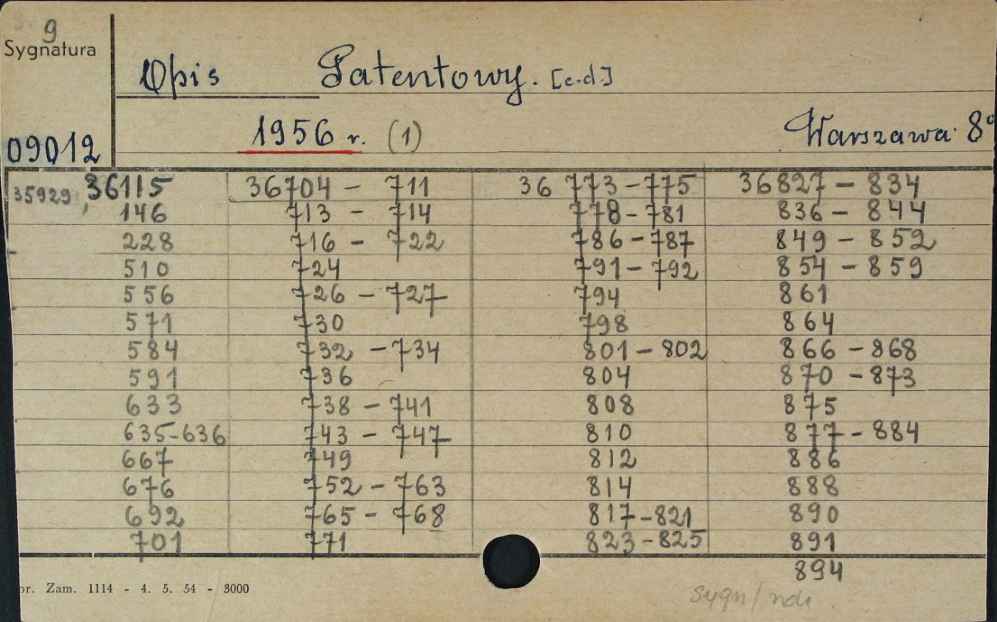 9
Sygnatura
Opis Patentowy. [c.d.]
09012
1956 r. (1)
Warszawa 8°
35929, 36115 36704 - 711 36 773-775 36827 - 834
146 713 - 714 778-781 836 - 844
228 716 - 722 786-787 849 - 852
510 724 791-792 854 - 859
556 726 - 727 794 861
571 730 798 864
584 732 - 734 801-802 866 - 868
591 736 804 870 - 873
633 738 - 741 808 875
635-636 743 - 747 810 877 - 884
667 749 812 886
676 752 - 763 814 888
692 765 - 768 817-821 890
701 771 823-825 891
894
or. Zam. 1114 - 4. 5. 54 - 3000